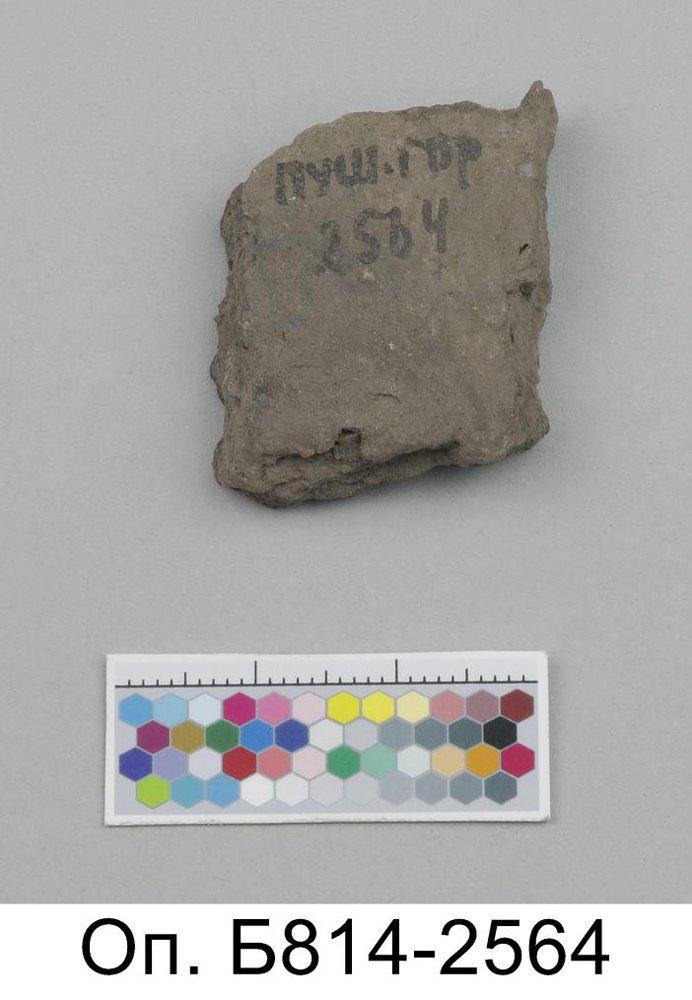 ПУШ.ГОР
2564
Оп. Б814-2564